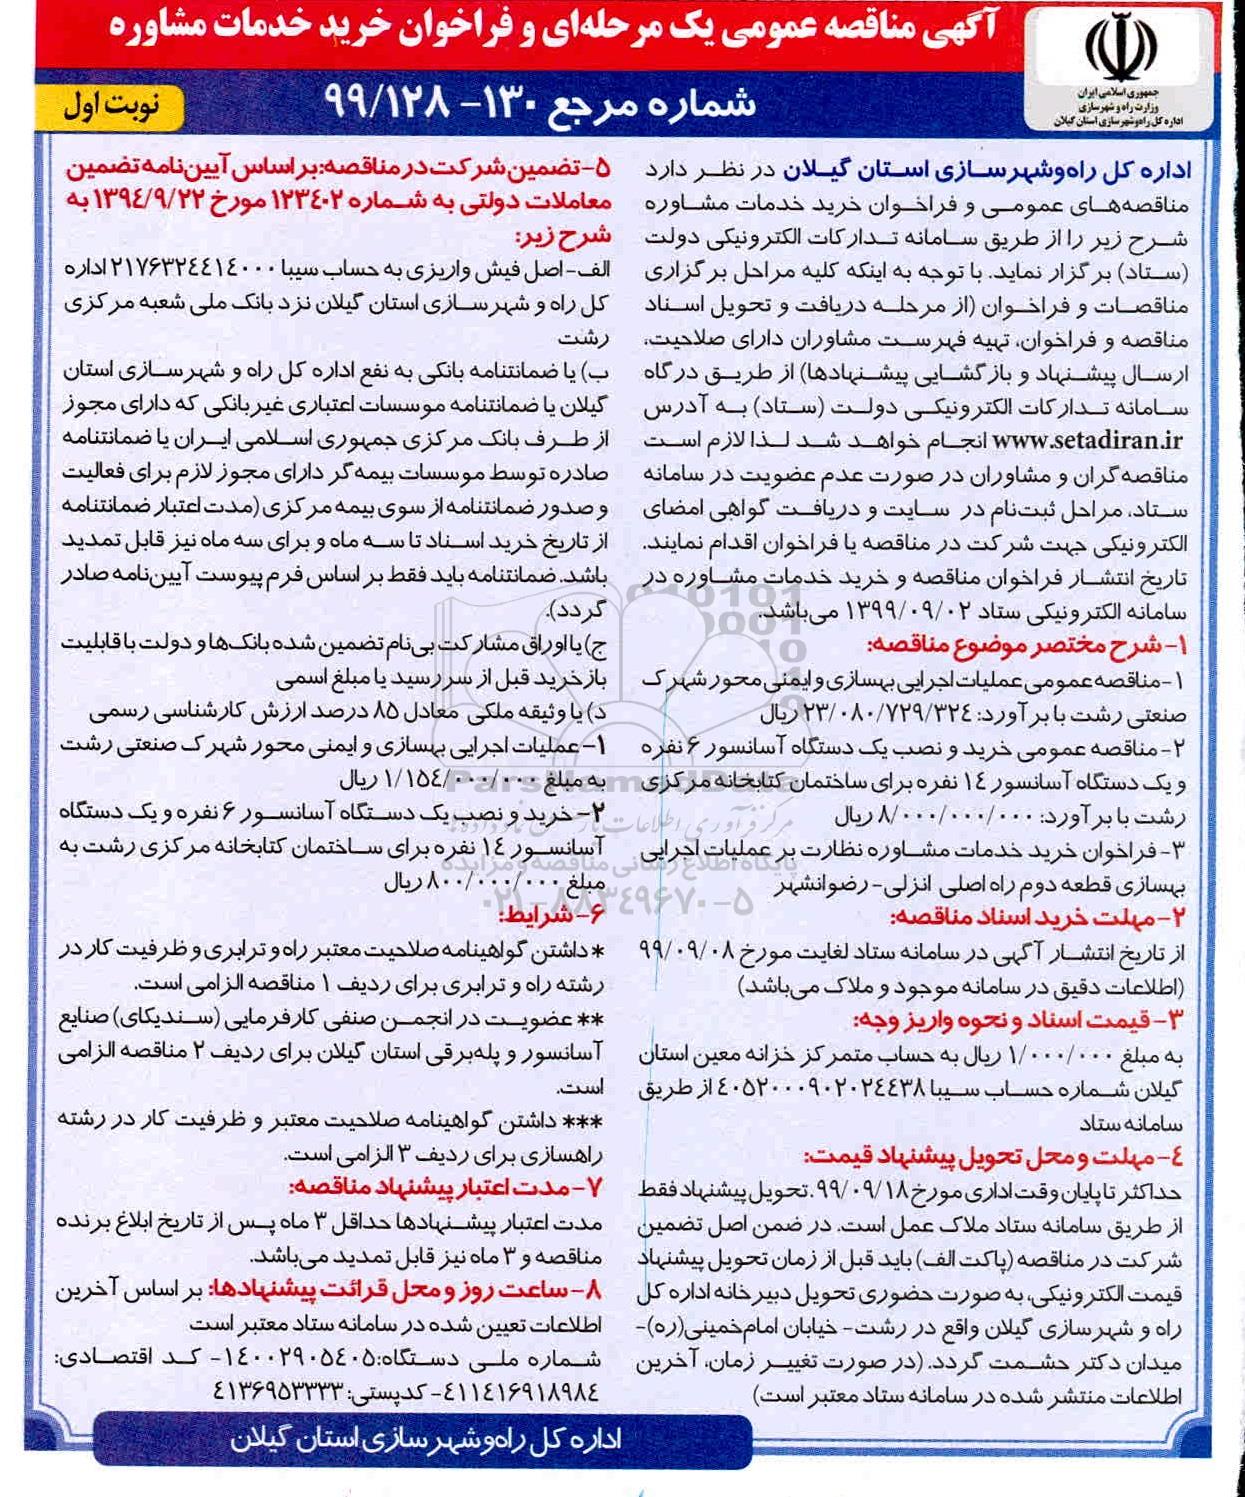 آگهی مناقصه عمومی یک مرحله‌ای و فراخوان خرید خدمات مشاوره
شماره مرجع ۱۳۰- ۹۹/۱۲۸
نوبت اول
جمهوری اسلامی ایران
وزارت راه و شهرسازی
اداره کل راه‌وشهرسازی استان گیلان
اداره کل راه‌وشهرسازی استان گیلان در نظر دارد
مناقصه‌های عمومی و فراخوان خرید خدمات مشاوره
شرح زیر را از طریق سامانه تدارکات الکترونیکی دولت
(ستاد) برگزار نماید. با توجه به اینکه کلیه مراحل برگزاری
مناقصات و فراخوان (از مرحله دریافت و تحویل اسناد
مناقصه و فراخوان، تهیه فهرست مشاوران دارای صلاحیت،
ارسال پیشنهاد و بازگشایی پیشنهادها) از طریق درگاه
سامانه تدارکات الکترونیکی دولت (ستاد) به آدرس
www.setadiran.ir انجام خواهد شد لذا لازم است
مناقصه‌گران و مشاوران در صورت عدم عضویت در سامانه
ستاد، مراحل ثبت‌نام در سایت و دریافت گواهی امضای
الکترونیکی جهت شرکت در مناقصه یا فراخوان اقدام نمایند.
تاریخ انتشار فراخوان مناقصه و خرید خدمات مشاوره در
سامانه الکترونیکی ستاد ۱۳۹۹/۰۹/۰۲ می‌باشد.
۱- شرح مختصر موضوع مناقصه:
۱-مناقصه عمومی عملیات اجرایی بهسازی و ایمنی محور شهرک
صنعتی رشت با برآورد: ۲۳/۰۸۰/۷۲۹/۳۲۴ ریال
۲- مناقصه عمومی خرید و نصب یک دستگاه آسانسور ۶ نفره
و یک دستگاه آسانسور ۱۴ نفره برای ساختمان کتابخانه مرکزی
رشت با برآورد: ۸/۰۰۰/۰۰۰/۰۰۰ ریال
۳- فراخوان خرید خدمات مشاوره نظارت بر عملیات اجرایی
بهسازی قطعه دوم راه اصلی انزلی- رضوانشهر
۲- مهلت خرید اسناد مناقصه:
از تاریخ انتشار آگهی در سامانه ستاد لغایت مورخ ۹۹/۰۹/۰۸
(اطلاعات دقیق در سامانه موجود و ملاک می‌باشد)
۳- قیمت اسناد و نحوه واریز وجه:
به مبلغ ۱/۰۰۰/۰۰۰ ریال به حساب متمرکز خزانه معین استان
گیلان شماره حساب سیبا ۴۰۵۲۰۰۰۹۰۲۰۲۴۴۳۸ از طریق
سامانه ستاد
۴- مهلت و محل تحویل پیشنهاد قیمت:
حداکثر تا پایان وقت اداری مورخ ۹۹/۰۹/۱۸. تحویل پیشنهاد فقط
از طریق سامانه ستاد ملاک عمل است. در ضمن اصل تضمین
شرکت در مناقصه (پاکت الف) باید قبل از زمان تحویل پیشنهاد
قیمت الکترونیکی، به صورت حضوری تحویل دبیرخانه اداره کل
راه و شهرسازی گیلان واقع در رشت- خیابان امام‌خمینی(ره)-
میدان دکتر حشمت گردد. (در صورت تغییر زمان، آخرین
اطلاعات منتشر شده در سامانه ستاد معتبر است)
۵- تضمین شرکت در مناقصه: بر اساس آیین‌نامه تضمین
معاملات دولتی به شماره ۱۲۳۴۰۲ مورخ ۱۳۹۴/۹/۲۲ به
شرح زیر:
الف- اصل فیش واریزی به حساب سیبا ۲۱۷۶۳۲۴۴۱۴۰۰۰ اداره
کل راه و شهرسازی استان گیلان نزد بانک ملی شعبه مرکزی
رشت
ب) یا ضمانتنامه بانکی به نفع اداره کل راه و شهرسازی استان
گیلان یا ضمانتنامه موسسات اعتباری غیربانکی که دارای مجوز
از طرف بانک مرکزی جمهوری اسلامی ایران یا ضمانتنامه
صادره توسط موسسات بیمه‌گر دارای مجوز لازم برای فعالیت
و صدور ضمانتنامه از سوی بیمه مرکزی (مدت اعتبار ضمانتنامه
از تاریخ خرید اسناد تا سه ماه و برای سه ماه نیز قابل تمدید
باشد. ضمانتنامه باید فقط بر اساس فرم پیوست آیین‌نامه صادر
گردد).
ج) یا اوراق مشارکت بی‌نام تضمین شده بانک‌ها و دولت با قابلیت
بازخرید قبل از سررسید یا مبلغ اسمی
د) یا وثیقه ملکی معادل ۸۵ درصد ارزش کارشناسی رسمی
۱- عملیات اجرایی بهسازی و ایمنی محور شهرک صنعتی رشت
به مبلغ ۱/۱۵۴/۰۰۰/۰۰۰ ریال
۲- خرید و نصب یک دستگاه آسانسور ۶ نفره و یک دستگاه
آسانسور ۱۴ نفره برای ساختمان کتابخانه مرکزی رشت به
مبلغ ۸۰۰/۰۰۰/۰۰۰ ریال
۶- شرایط:
* داشتن گواهینامه صلاحیت معتبر راه و ترابری و ظرفیت کار در
رشته راه و ترابری برای ردیف ۱ مناقصه الزامی است.
** عضویت در انجمن صنفی کارفرمایی (سندیکای) صنایع
آسانسور و پله‌برقی استان گیلان برای ردیف ۲ مناقصه الزامی
است.
*** داشتن گواهینامه صلاحیت معتبر و ظرفیت کار در رشته
راهسازی برای ردیف ۳ الزامی است.
۷- مدت اعتبار پیشنهاد مناقصه:
مدت اعتبار پیشنهادها حداقل ۳ ماه پس از تاریخ ابلاغ برنده
مناقصه و ۳ ماه نیز قابل تمدید می‌باشد.
۸- ساعت روز و محل قرائت پیشنهادها: بر اساس آخرین
اطلاعات تعیین شده در سامانه ستاد معتبر است
شماره ملی دستگاه:۱۴۰۰۲۹۰۵۴۰۵- کد اقتصادی:
۴۱۱۴۱۶۹۱۸۹۸۴- کدپستی: ۴۱۳۶۹۵۳۳۳۳
اداره کل راه‌وشهرسازی استان گیلان
ParsNamadData
پایگاه اطلاع رسانی مناقصه و مزایده
۰۲۱-۸۸۳۴۹۶۷۰-۵